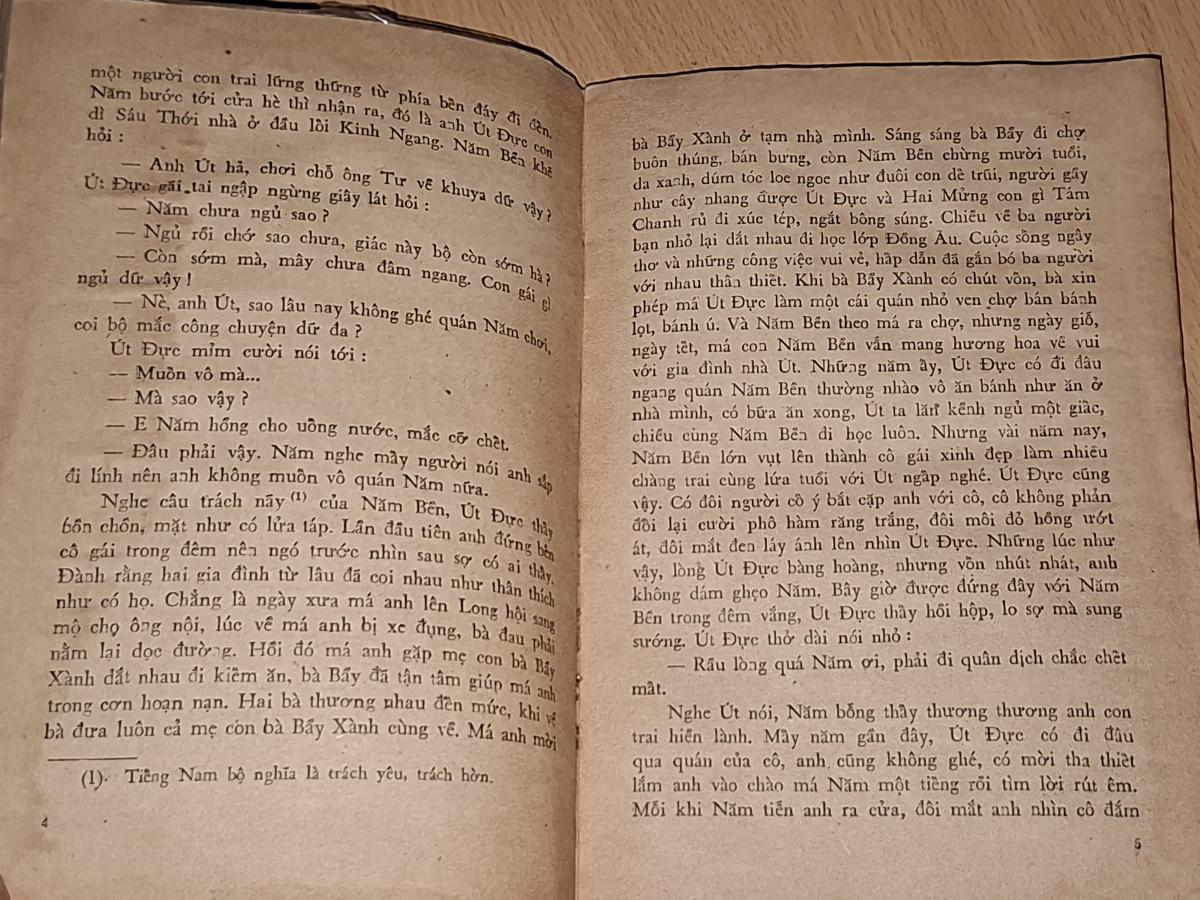 một người con trai lững thững từ phía bền đáy đi đền.
Năm bước tới cửa hè thì nhận ra, đó là anh Út Đực con
dì Sáu Thới nhà ở đầu lồi Kinh Ngang. Năm Bền khẽ
hỏi :
— Anh Út hả, chơi chỗ ông Tư về khuya dữ vậy ?
Út Đực gãi tai ngập ngừng giây lát hỏi :
— Năm chưa ngủ sao ?
— Ngủ rồi chớ sao chưa, giác này bộ còn sớm hà ?
— Còn sớm mà, mây chưa đâm ngang. Con gái gì
ngủ dữ vậy !
— Nè, anh Út, sao lâu nay không ghé quán Năm chơi,
coi bộ mắc công chuyện dữ đa ?
Út Đực mỉm cười nói tới :
— Muồn vô mà...
— Mà sao vậy ?
— E Năm hổng cho uồng nước, mắc cỡ chềt.
— Đâu phải vậy. Năm nghe mầy người nói anh sắp
đi lính nên anh không muồn vô quán Năm nữa.
Nghe câu trách nãy (1) của Năm Bền, Út Đực thầy
bồn chồn, mặt như có lửa táp. Lần đầu tiên anh đứng bên
cô gái trong đêm nên ngó trước nhìn sau sợ có ai thầy.
Đành rằng hai gia đình từ lâu đã coi nhau như thân thích
như có họ. Chẳng là ngày xưa má anh lên Long hội sang
mộ cho ông nội, lúc về má anh bị xe đụng, bà đau phải
nằm lại dọc đường. Hồi đó má anh gặp mẹ con bà Bẩy
Xành dắt nhau đi kiềm ăn, bà Bẩy đã tận tâm giúp má anh
trong cơn hoạn nạn. Hai bà thương nhau đền mức, khi về
bà đưa luôn cả mẹ con bà Bẩy Xành cùng về. Má anh mời
(1). Tiềng Nam bộ nghĩa là trách yêu, trách hờn.
4
bà Bẩy Xành ở tạm nhà mình. Sáng sáng bà Bẩy đi chợ
buôn thúng, bán bưng, còn Năm Bền chừng mười tuổi,
da xanh, dúm tóc loe ngoe như đuôi con dề trũi, người gầy
như cây nhang được Út Đực và Hai Mừng con gì Tám
Chanh rủ đi xúc tép, ngắt bông súng. Chiều về ba người
bạn nhỏ lại dắt nhau đi học lớp Đồng Ầu. Cuộc sồng ngây
thơ và những công việc vui vẻ, hầp dẫn đã gắn bó ba người
với nhau thân thiềt. Khi bà Bẩy Xành có chút vồn, bà xin
phép má Út Đực làm một cái quán nhỏ ven chợ bán bánh
lọt, bánh ú. Và Năm Bền theo má ra chợ, nhưng ngày giỗ,
ngày tềt, má con Năm Bền vẫn mang hương hoa về vui
với gia đình nhà Út. Những năm ầy, Út Đực có đi đâu
ngang quán Năm Bền thường nhào vô ăn bánh như ăn ở
nhà mình, có bữa ăn xong, Út ta lăn kềnh ngủ một giầc,
chiều cùng Năm Bền đi học luôn. Nhưng vài năm nay,
Năm Bền lớn vụt lên thành cô gái xinh đẹp làm nhiều
chàng trai cùng lứa tuổi với Út ngầp nghé. Út Đực cũng
vậy. Có đôi người cồ ý bắt cặp anh với cô, cô không phản
đồi lại cười phô hàm răng trắng, đôi môi đỏ hồng ướt
át, đôi mắt đen láy ánh lên nhìn Út Đực. Những lúc như
vậy, lòng Út Đực bàng hoàng, nhưng vồn nhút nhát, anh
không dám ghẹo Năm. Bây giờ được đứng đây với Năm
Bền trong đêm vắng, Út Đực thầy hồi hộp, lo sợ mà sung
sướng. Út Đực thở dài nói nhỏ :
— Rầu lòng quá Năm ơi, phải đi quân dịch chắc chềt
mầt.
Nghe Út nói, Năm bỗng thầy thương thương anh con
trai hiền lành. Mầy năm gần đây, Út Đực có đi đâu
qua quán của cô, anh cũng không ghé, có mời tha thiềt
lắm anh vào chào má Năm một tiềng rồi tìm lời rút êm.
Mỗi khi Năm tiễn anh ra cửa, đôi mắt anh nhìn cô đắm
5